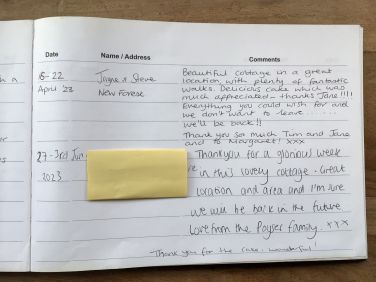 Date Name / Address Comments
15-22 Jayne & Steve
April '23 New Forest
Beautiful cottage in a great
location, with plenty of fantastic
walks. Delicious cake which was
much appreciated - thanks Jane!!!!
Everything you could wish for and
we don't want to leave......
we'll be back!!
Thank you so much Tim and Jane
and to Margaret! xxx
27-3rd Jun
2023
Thankyou for a glorious week
in this lovely cottage. Great
location and area and I'm sure
we will be back in the future
Love from the Poyser family. xxx
Thank you for the cake, wonderful!